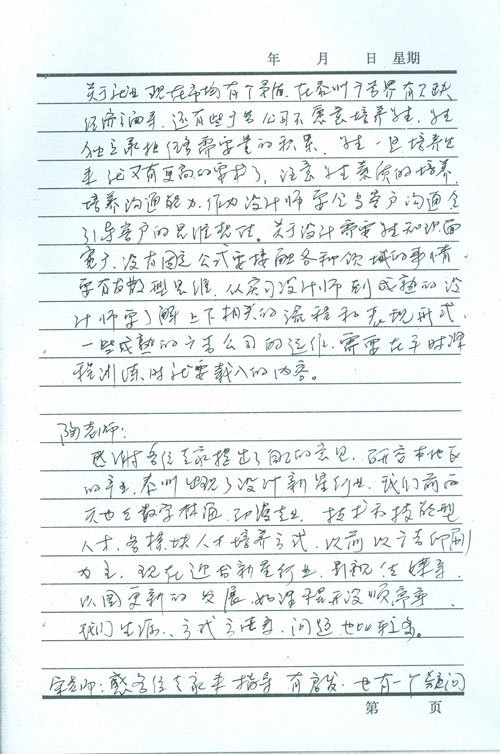 年 月 日 星期
关于就业现在市场有个矛盾，在泰州广告界有欠缺
经济之面等，还有些广告公司不愿意培养学生，学生
独立承担任务需要量的积累，学生一旦培养出
来就又有更高的要求了，注意学生素质的培养，
培养沟通能力，作为设计师要会与客户沟通会
引导客户的思维想法。关于设计需要学生知识面
宽广，没有固定公式要接触各种领域的事情，
要有发散型思维，从实习设计师到成熟的设
计师要了解上下相关的流程和表现形式，
一些成熟的广告公司的运作，需要在平时课
程训练时就要载入的内容。
陶老师：
感谢各位专家提出了自己的意见，研究本地区
的产业，泰州出现了设计新星行业，我们前两
天也在数字林酒、动漫专业、技术和技能型
人才，各模块人才培养方式，以前以广告印刷
为主，现在迎合新星行业，影视传媒等
以图更新的发展，
我们生源、方式方法等，问题也比较多。
宋老师：感各位专家来指导有启发，也有一个疑问
第 页